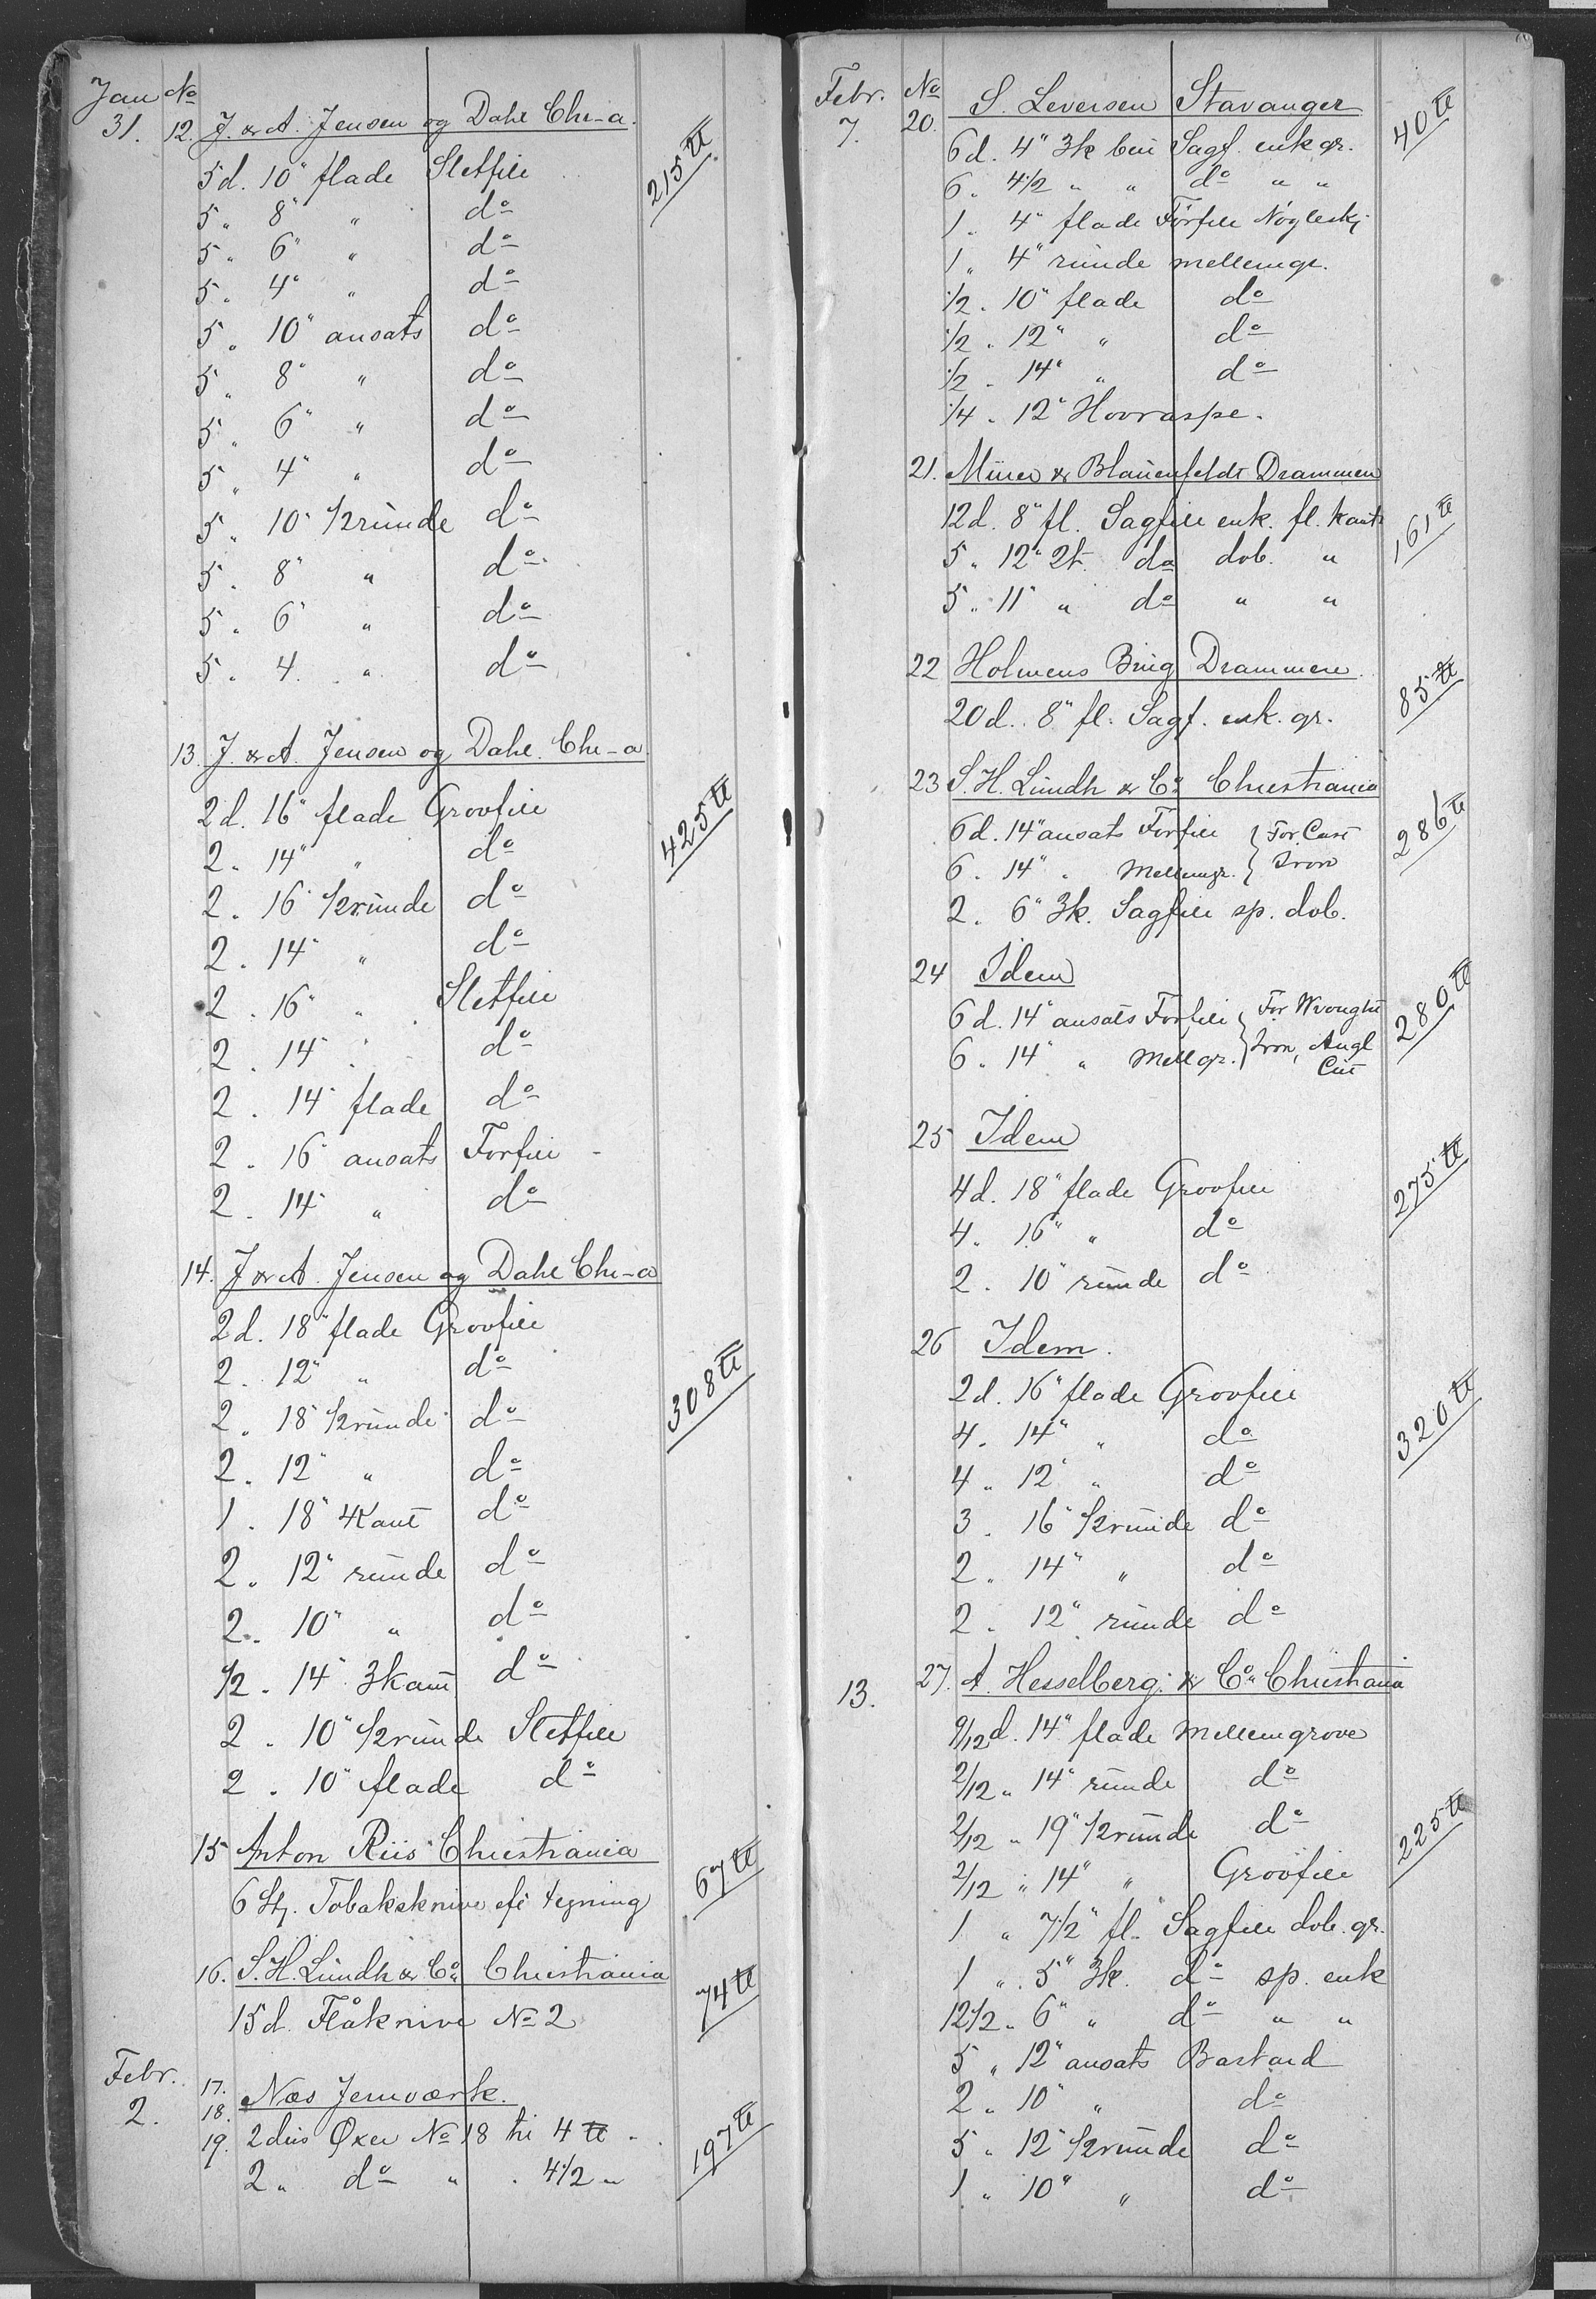 Jan No
31. 12. J. & A. Jensen og Dahl Chr-a.
5 d. 10" flade Sletfile 215 ℔
5 „ 8" „ do
5 „ 6" „ do
5 „ 4" „ do
5 „ 10" ansats do
5 „ 8" „ do
5 „ 6" „ do
5 „ 4" „ do
5 „ 10" 1/2runde do
5 „ 8" „ do
5 „ 6" „ do
5 „ 4 „ do
13. J. & A. Jensen og Dahl. Chr-a.
2 d. 16" flade Grovfile 425 ℔
2 „ 14" „ do
2 „ 16" 1/2runde do
2 „ 14" „ do
2 „ 16" „ Sletfile
2 „ 14" „ do
2 „ 14" flade do
2 „ 16" ansats Forfile
2 „ 14" „ do
14. J & A. Jensen og Dahl Chr-a
2 d. 18" flade Grovfile
2 „ 12" „ do 308 ℔
2 „ 18" 1/2runde do
2 „ 12" „ do
1 „ 18" 4Kant do
2 „ 12" runde do
2 „ 10" „ do
1/2 „ 14" 3kant do
2 „ 10" 1/2runde Sletfile
2 „ 10" flade do
15 Anton Riis Christiania
6 Stk. Tobaksknive eft tegning 67 ℔
16. S. H. Lundh & Co. Christiania
15 d. Flåknive No 2 74 ℔
Febr. 17.
2. 18. Næs Jernværk.
19. 2 dus Øxer No 18 til 4 ℔ 197 ℔
2 „ do „ „ 4 1/2 „
Febr. No
7. 20. S. Leversen Stavanger 40 ℔
6 d. 4" 3k ben Sagf. enk gr.
6 „ 4 1/2 „ „ do „ „
1 „ 4" flade Forfile Nøglesk.
1 „ 4" runde mellemgr.
1/2 „ 10" flade do
1/2 „ 12" „ do
1/2 „ 14" „ do
1/4 „ 12" Hovraspe.
21. & Blauenfeldt Drammen
12 d. 8" fl. Sagfile enk. fl. kant 161 ℔
5 „ 12" 2t. do dob. „
5 „ 11" „ do „ „
22 Holmens Brug Drammen.
20 d. 8" fl. Sagf. enk. gr. 85 ℔
23 S. H. Lundh & Co. Christiania
6 d. 14" ansats Forfile } For Cast 286 ℔
6 „ 14" „ Mellemgr. } Iron
2 „ 6" 3k. Sagfile sp. dob.
24 Idem
6 d. 14" ansats Forfile } For Wrought 280 ℔
6 „ 14" „ Mellgr. } Iron, Angl
Cut
25 Idem
4 d. 18" flade Grovfile 275 ℔
4 „ 16" „ do
2 „ 10" runde do
26 Idem.
2 d. 16" flade Grovfile
4 „ 14" „ do 320 ℔
4 „ 12" „ do
3 „ 16" 1/2runde do
2 „ 14" „ do
2 „ 12" runde do
13. 27. A. Hesselberg & Co. Christiania
9/12 d. 14" flade mellemgrove
2/12 „ 14" runde do
2/12 „ 19" 1/2runde do 225 ℔
2/12 „ 14" „ Grovfile
1 „ 7 1/2" fl. Sagfile dob. gr.
1 „ 5" 3k. do sp. enk
12 1/2 „ 6" „ do „ „
5 „ 12" ansats Bastard
2 „ 10" „ do
5 „ 12" 1/2runde do
1 „ 10" „ do